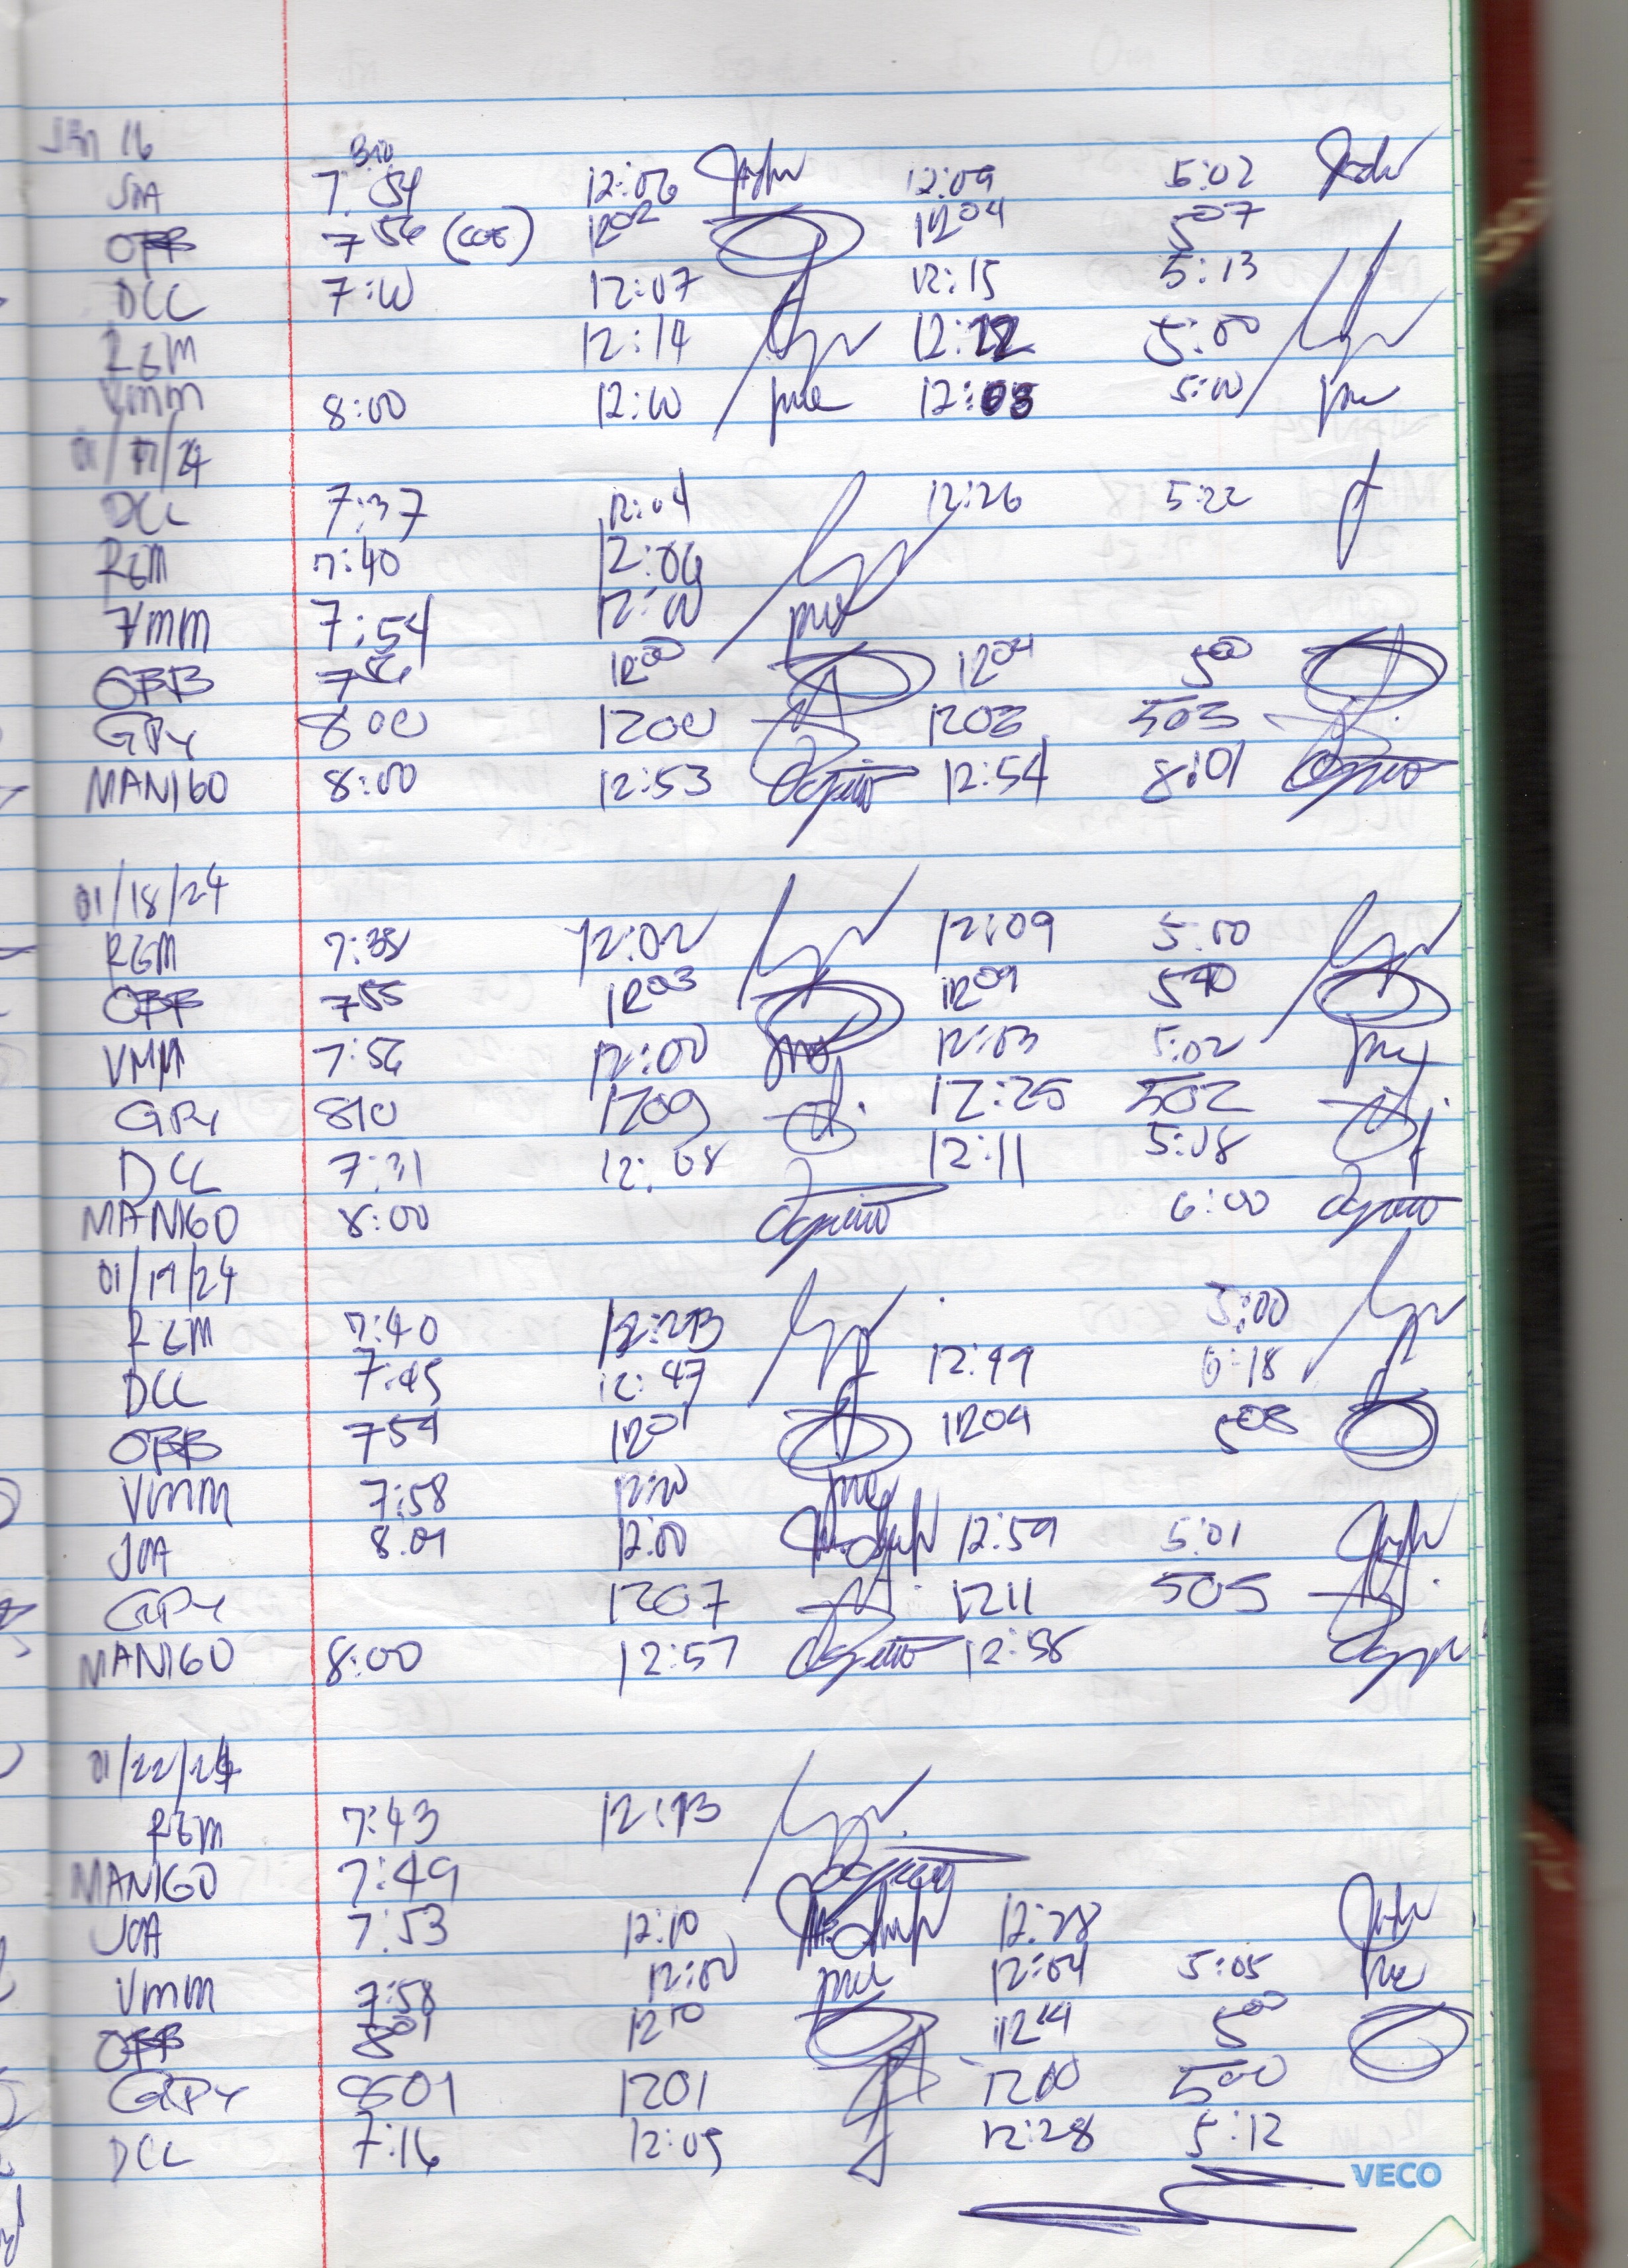 Jan 16
Bio
JOA 7:54 12:06 12:09 5:02
OBB 7 56 (COE) 12 02 12 04 5 07
DCC 7:10 12:07 12:15 5:13
RGM 12:14 12:22 5:00
VMM 8:00 12:10 12:03 5:10
01/17/24
DCC 7:37 12:04 12:26 5:22
RGM 7:40 12:06
VMM 7:54 12:00
OBB 7 56 12 00 12 04 5 00
GPY 8 00 1200 1203 503
MANIGO 8:00 12:53 12:54 8:01
01/18/24
RGM 7:38 12:02 12:09 5:00
OBB 7 55 12 03 12 09 5 40
VMM 7:56 12:00 12:03 5:02
GPY 810 1209 12:25 502
DCC 7:31 12:08 12:11 5:08
MANIGO 8:00 6:00
01/19/24
RGM 7:40 12:23 5:00
DCC 7:45 12:47 12:49 6:18
OBB 7 54 12 01 12 04 5 08
VMM 7:58 12:10
JOA 8:09 12:00 12:59 5:01
GPY 1207 1211 505
MANIGO 8:00 12:57 12:58
01/22/24
RGM 7:43 12:13
MANIGO 7:49
JOA 7:53 12:10 12:28
VMM 7:58 12:00 12:04 5:05
OBB 8 01 12 10 12 14 5 00
GPY 801 1201 1200 500
DCC 7:16 12:05 12:28 5:12
VECO